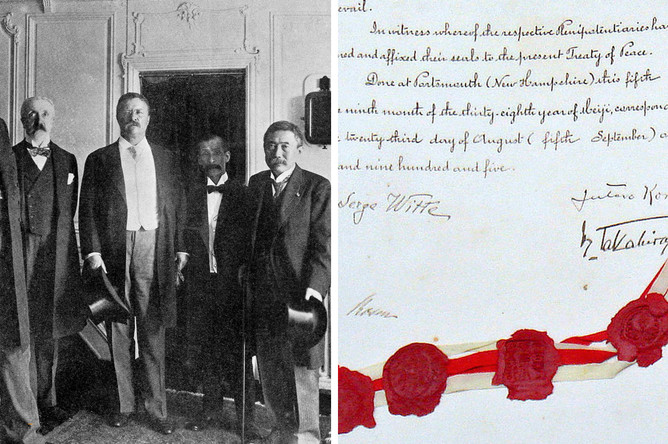 evail.
In witness whereof the respective Plenipotentiaries ha
ned and affixed their seals to the present Treaty of Peace.
Done at Portsmouth (New Hampshire) this fifth
e ninth month of the thirty-eighth year of Meiji, correspon
e twenty-third day of August (fifth September) o
and nine hundred and five.
Serge Witte
Jutaro Ko
K. Takahira
Rosen